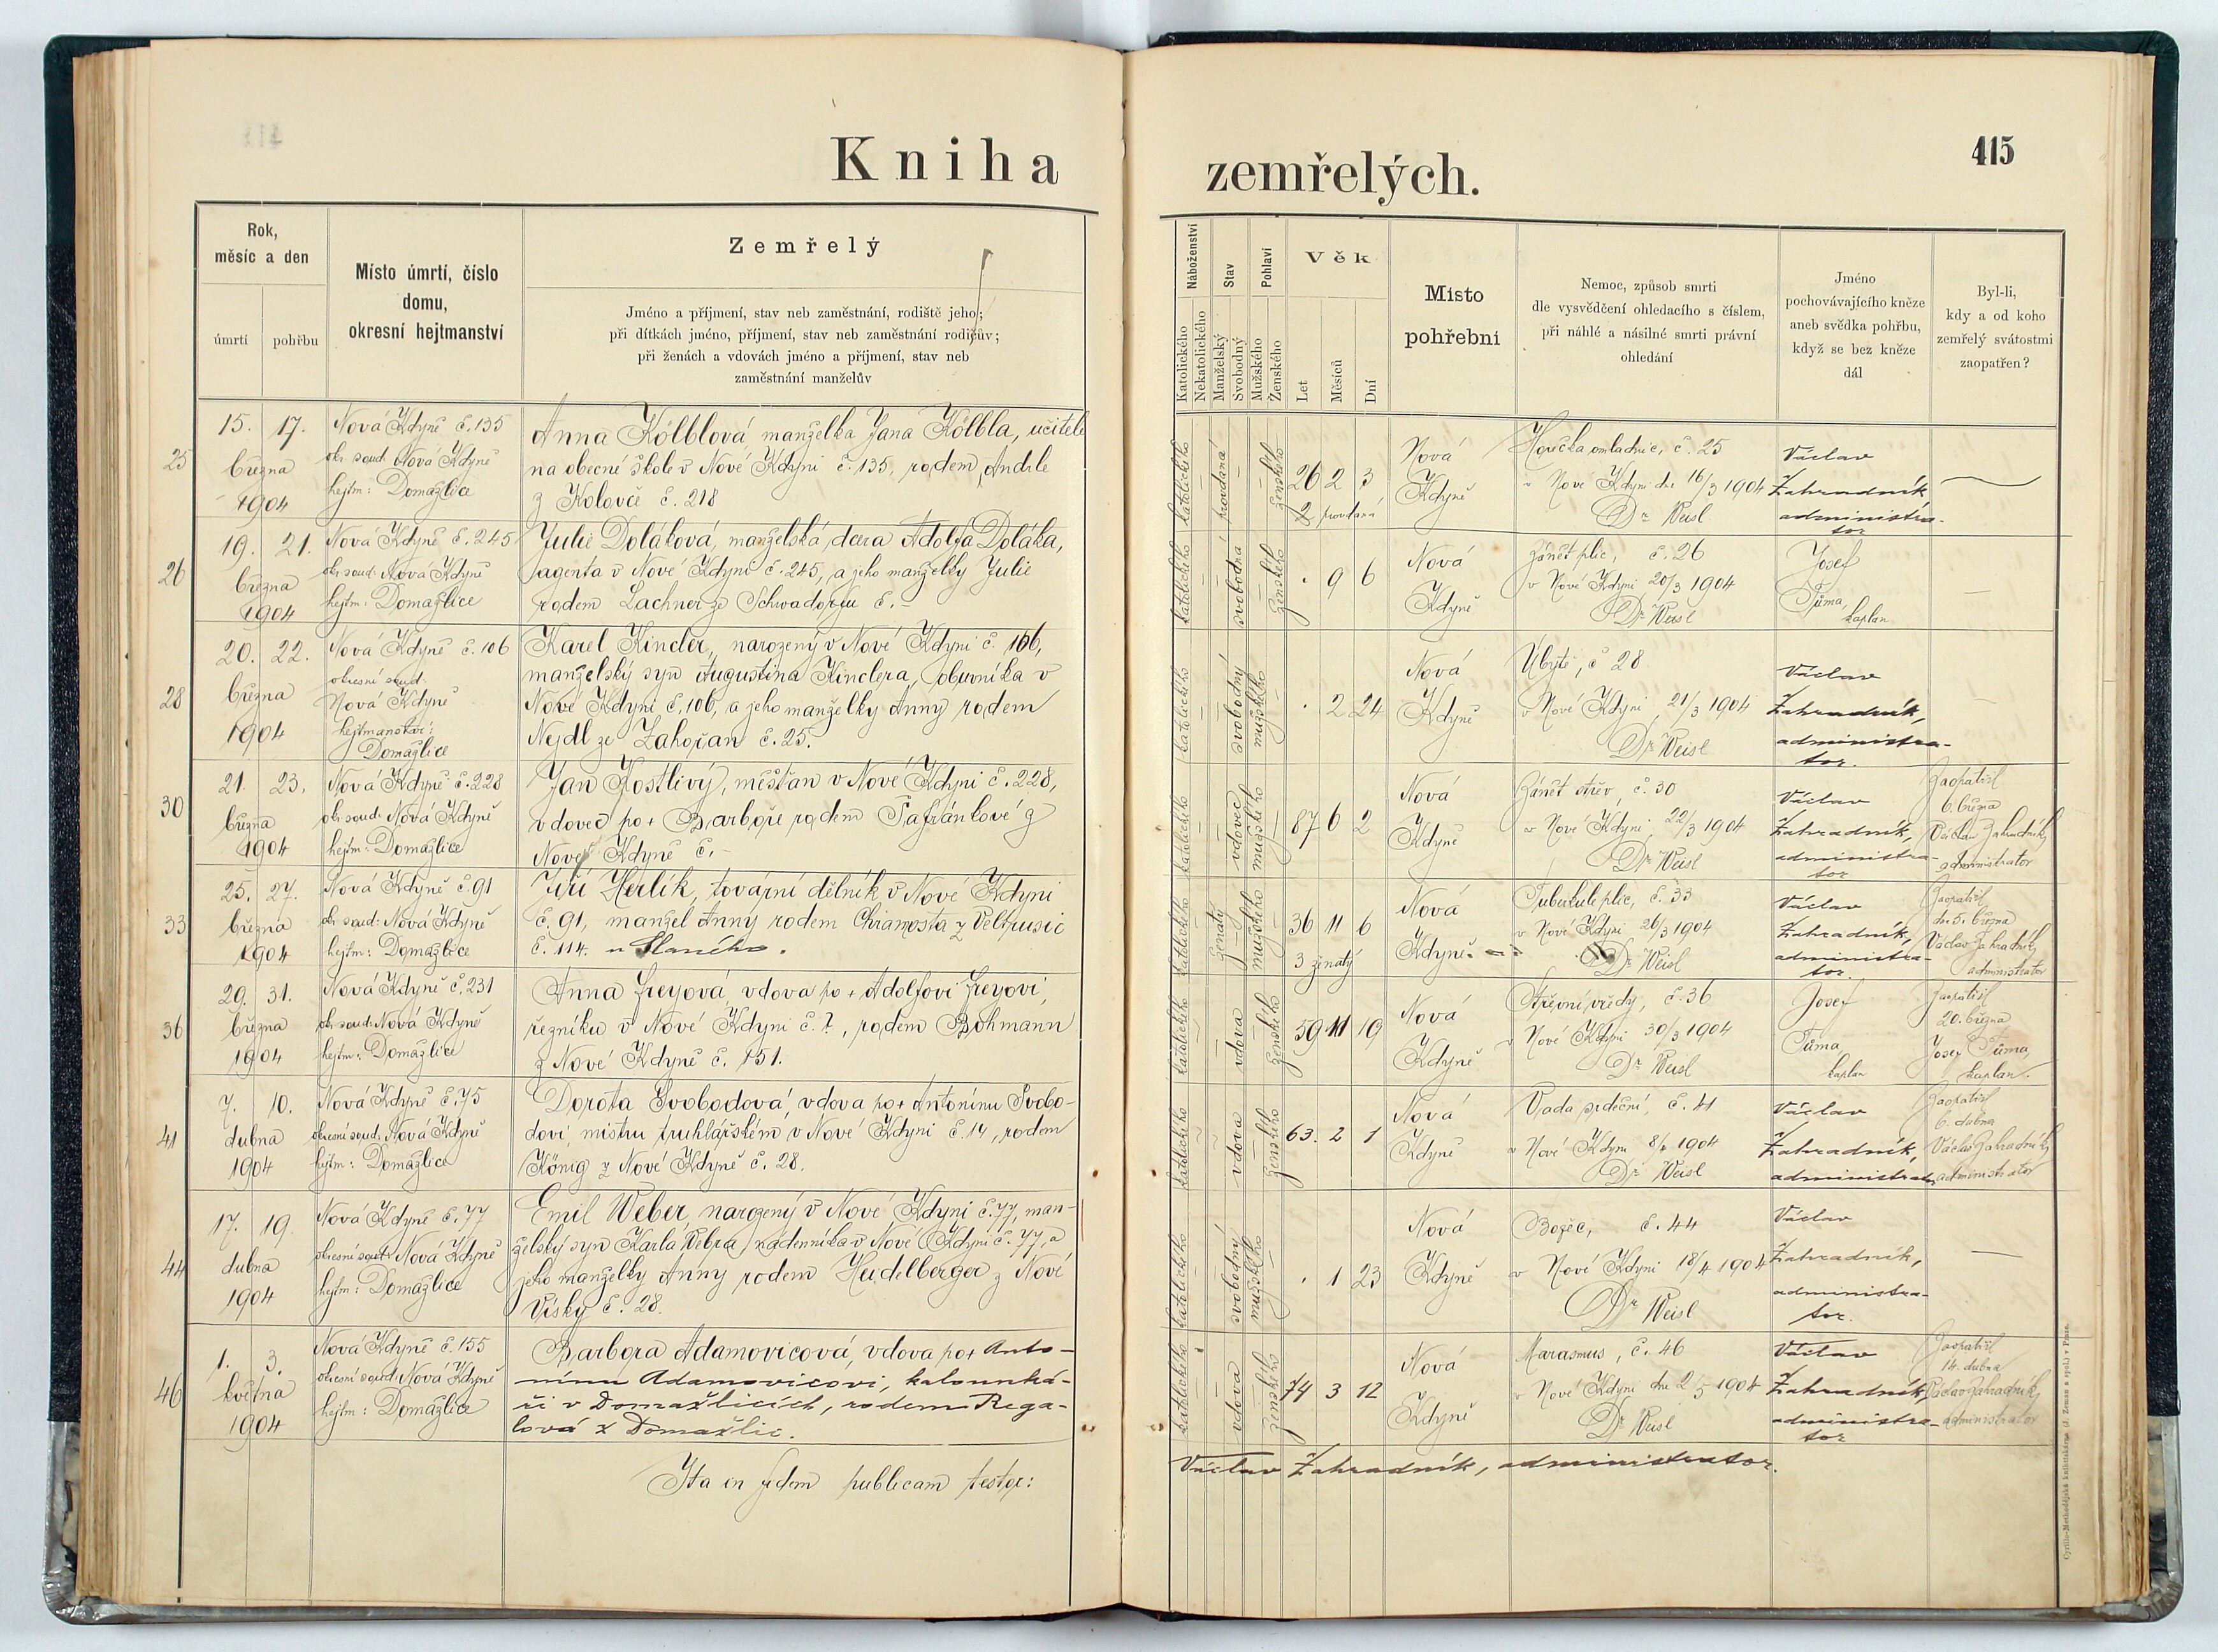 Kniha zemřelých.
415
Rok,
měsíc a den
úmrtí
pohřbu
Místo úmrtí, číslo
domu,
okresní hejtmanství
Zemřelý
Jméno a příjmení, stav neb zaměstnání, rodiště jeho;
při dítkách jméno, příjmení, stav neb zaměstnání rodičův;
při ženách a vdovách jméno a příjmení, stav neb
zaměstnání manželův
Náboženství
Katolického
Nekatolického
Stav
Manželský
Svobodný
Pohlaví
Mužského
Ženského
Věk
Let
Měsíců
Dní
Místo
pohřební
Nemoc, způsob smrti
dle vysvědčení ohledacího s číslem,
při náhlé a násilné smrti právní
ohledání
Jméno
pochovávajícího kněze
aneb svědka pohřbu,
když se bez kněze
dál
Byl-li,
kdy a od koho
zemřelý svátostmi
zaopatřen?
25
15. 17.
března
1904
Nová Kdyně č. 135
okr. soud: Nová Kdyně
hejtm: Domažlice
Anna Kölblová, manželka Jana Kölbla, učitele
na obecné škole v Nové Kdyni č. 135, rodem Andrle
z Koloveč č. 218
katolického
provdaná
ženského
26 2 3
2 provdaná
Nová
Kdyně
Horečka omladnic, č. 25
v Nové Kdyni dne 16/3 1904
Dr Weisl
Václav
Zahradník,
administra-
tor
26
19. 21.
března
1904
Nová Kdyně č. 245
okr. soud: Nová Kdyně
hejtm: Domažlice
Julie Doláková, manželská dcera Adolfa Doláka,
agenta v Nové Kdyni č. 245, a jeho manželky Julie
rodem Lachner ze Schwadorfu č. -
katolického
svobodná
ženského
. 9 6
Nová
Kdyně
Zánět plic, č. 26
v Nové Kdyni 20/3 1904
Dr Weisl
Josef
Tůma,
kaplan
28
20. 22.
března
1904
Nová Kdyně č. 106
okresní soud:
Nová Kdyně
Domažlice
Karel Kincler, narozený v Nové Kdyni č. 106,
manželský syn Augustina Kinclera, obuvníka v
Nové Kdyni č. 106, a jeho manželky Anny rodem
Nejdl ze Zahořan č. 25.
katolického
svobodný
mužského
. 2 24
Nová
Kdyně
Úbytě, č 28
v Nové Kdyni 21/3 1904
Dr Weisl
Václav
Zahradník,
administra-
tor.
30
21. 23.
března
1904
Nová Kdyně č. 228
okr. soud: Nová Kdyně
hejtm: Domažlice
Jan Kostlivý, měšťan v Nové Kdyni č. 228,
vdovec po + Barboře rodem Šafránkové z
Nové Kdyně č. -
katolického
vdovec
mužského
87 6 2
Nová
Kdyně
Zánět střev, č. 30
v Nové Kdyni 22/3 1904
Dr Weisl
Václav
Zahradník,
administra-
tor
Zaopatřil
6. března
Václav Zahradník,
administrator
33
25. 27.
března
1904
Nová Kdyně č. 91
okr. soud: Nová Kdyně
hejtm: Domažlice
Jiří Herlík, tovární dělník v Nové Kdyni
č. 91, manžel Anny rodem Chramosta z Veltrusic
č. 114. u Slaného.
katolického
ženatý
mužského
36 11 6
3 ženatý
Nová
Kdyně
Tuberkule plic, č. 33
v Nové Kdyni 26/3 1904
Dr Weisl
Václav
Zahradník,
administra-
tor.
Zaopatřil
dne 5. března
Václav Zahradník,
administrator
36
29. 31.
března
1904
Nová Kdyně č. 231
okr. soud: Nová Kdyně
hejtm: Domažlice
Anna Freyová, vdova po + Adolfovi Freyovi,
řezníku v Nové Kdyni č. ?, rodem Bohmann
z Nové Kdyně č. 151.
katolického
vdova
ženského
59 11 19
Nová
Kdyně
Střevní vředy, č. 36
v Nové Kdyni 30/3 1904
Dr Weisl
Josef
Tůma,
kaplan
Zaopatřil
20. března
Josef Tůma,
kaplan.
41
7. 10.
dubna
1904
Nová Kdyně č. 75
okresní soud: Nová Kdyně
hejtm: Domažlice
Dorota Svobodová, vdova po + Antonínu Svobo-
dovi, mistru truhlářském v Nové Kdyni č. 14, rodem
König z Nové Kdyně č. 28.
katolického
vdova
ženského
63. 2 1
Nová
Kdyně
Vada srdeční, č. 41
v Nové Kdyni 8/4 1904
Dr Weisl
Václav
Zahradník,
administrator
Zaopatřil
6. dubna
Václav Zahradník,
administrator
44
17. 19.
dubna
1904
Nová Kdyně č. 77
okresní soud: Nová Kdyně
hejtm: Domažlice
Emil Weber, narozený v Nové Kdyni č. 77, man-
želský syn Karla Webra, nádenníka v Nové Kdyni č. 77, a
jeho manželky Anny rodem Heidelberger z Nové
Vísky č. 28.
katolického
svobodný
mužského
. 1 23
Nová
Kdyně
Božec, č. 44
v Nové Kdyni 18/4 1904
Dr Weisl
Václav
Zahradník,
administra-
tor.
46
1. 3.
května
1904
Nová Kdyně č. 155
okresní soud: Nová Kdyně
hejtm: Domažlice
Barbora Adamovicová, vdova po + Anto-
nínu Adamovicovi, kalounká-
ři v Domažlicích, rodem Rega-
lová z Domažlic.
katolického
vdova
ženské
74 3 12
Nová
Kdyně
Marasmus, č. 46
v Nové Kdyni dne 2/5 1904
Dr Weisl
Václav
Zahradník,
administra-
tor
Zaopatřil
14. dubna
Václav Zahradník,
administrator
Ita in fidem publicam testor:
Václav Zahradník, administrator.
Cyrillo-Methodějská knihtiskárna (J. Zeman a spol.) v Praze.